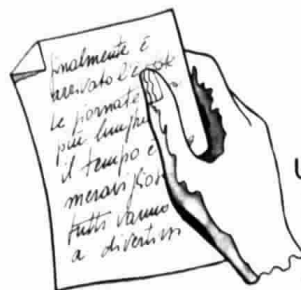 finalmente è
arrivato l'estate
le giornate
più lunghe
il tempo è
meraviglios
tutti vanno
a divertirsi